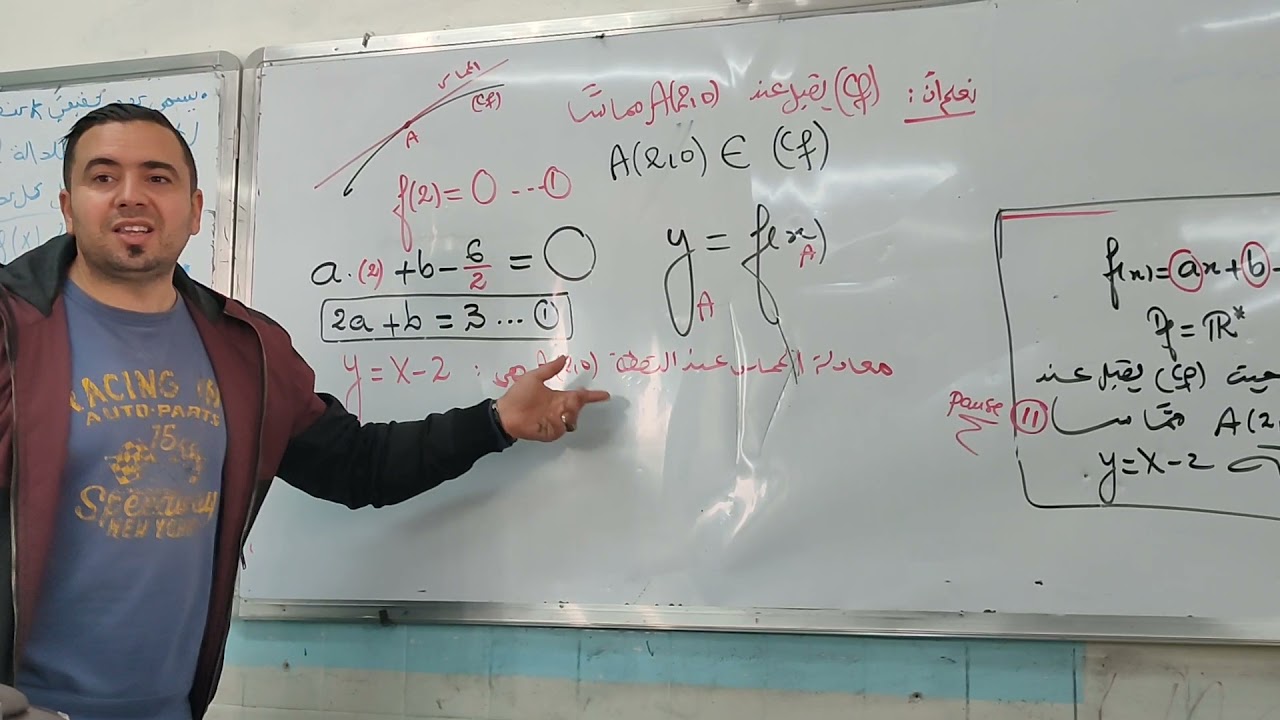 نعلم أن: (Cf) يقبل عند A(2,0) مماسًا
المماس
(Cf)
A
A(2,0) ∈ (Cf)
f(2) = 0 ... ①
y_A = f(x_A)
a·(2) + b - 6/2 = 0
2a + b = 3 ... ①
معادلة المماس عند النقطة A(2,0) هي: y = x - 2
f(x) = ax + b -
Df = ℝ*
حيث (Cf) يقبل عند
A(2, مماسًا
y = x - 2
Pause ⑪
RACING
AUTO-PARTS
75
Speedway
NEW YORK